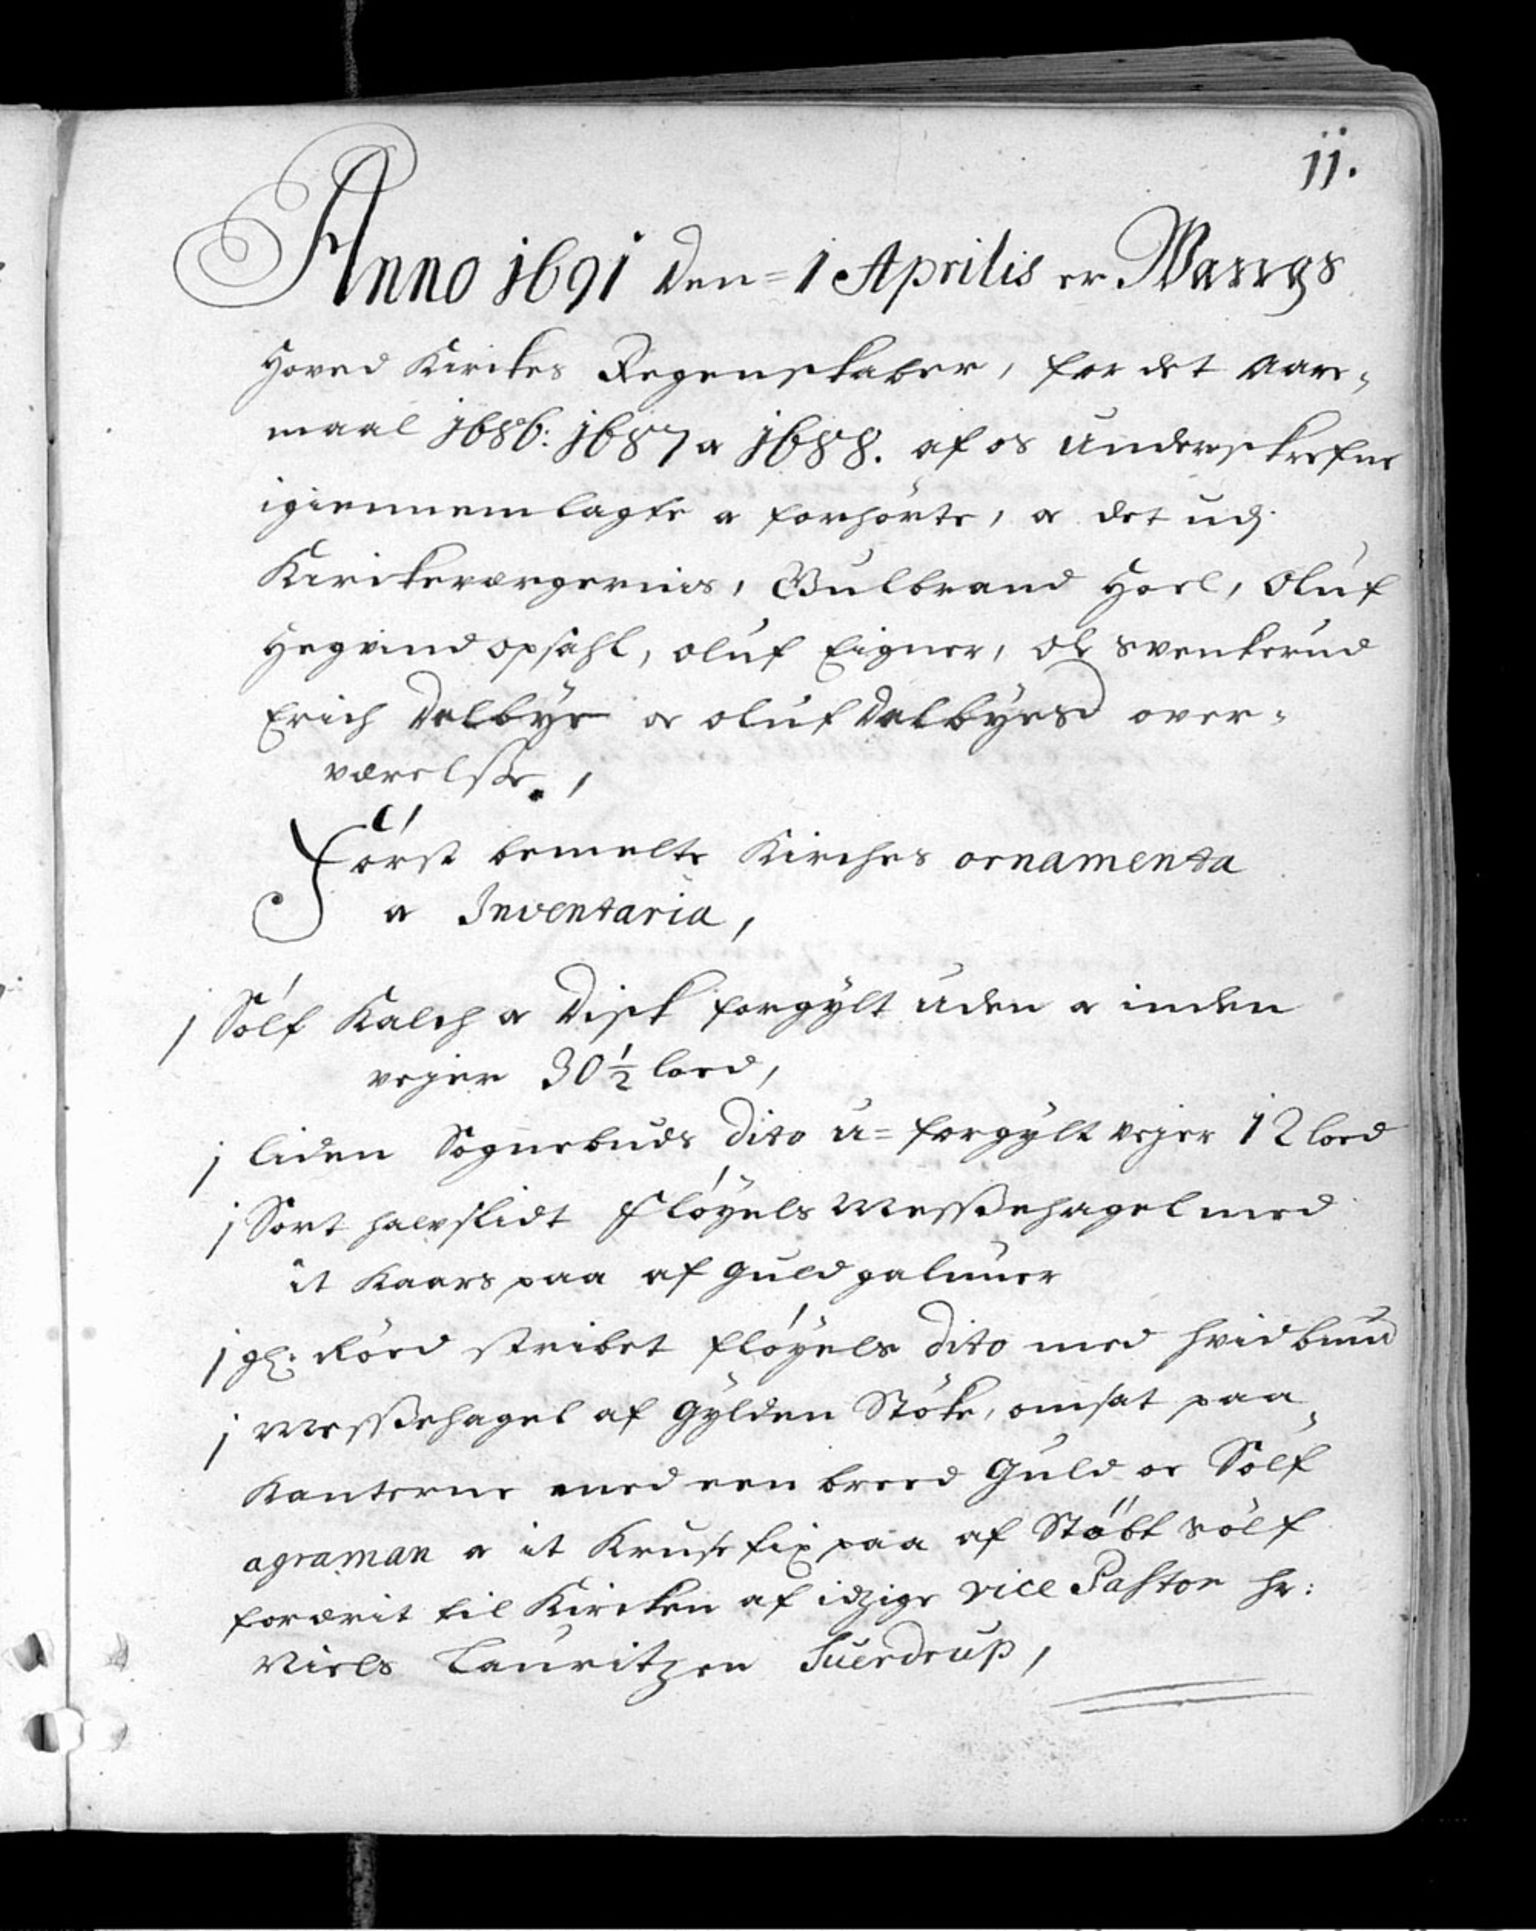 11.
Anno 1691 den = 1 Aprilis er Wangs
Hoved Kirkes Regenskaber, for det Aare,
maal 1686: 1687 a 1688. af os Underskrefne
igiennemlagte a forhörte, a det udj
Kirkeværgernis, Gulbrand Hoel, Oluf
Hegvind opsahl, oluf Eigner, Ole Svenkerud
Erich Dalbye oc oluf Dalbyes over,
værelsse,
Först bemelte Kirches ornamenta
a Inventaria,
1 Sölf Kalch a Disk forgylt uden a inden
vejer 30 1/2 loed,
1 liden Sognebuds dito u= forgylt vejer 12 loed
1 Sort halvslidt Fløyels Messehagel med
it Kaars paa af guld galuner
1 gl: Röed stribet fløyels dito med hvid bund
1 Messehagel af Gylden Stöke, omsat paa
Kanterne med een breed Guld oc Sölf
agraman a it Krusefix paa af Støbt sölf
foræerit til Kircken af idzige vice Pastor hr:
Niels Lauritzen Suerdrup,